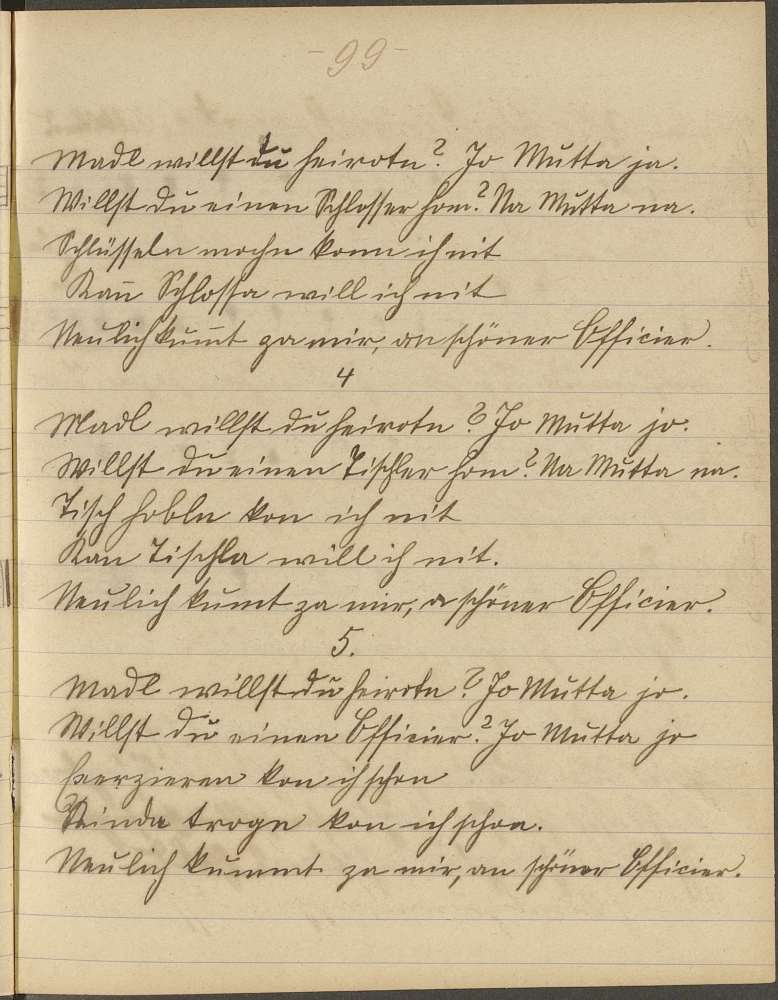 - 99 -
Madl willst du heirotn? Jo Mutta ja.
Willst du einen Schlosser hom? Na Mutta na.
Schlüsseln mochn konn ich nit
Kan̄ Schlossa will ich nit
Neulich kum̄t za mir, an schöner Officier.
4
Madl willst du heirotn? Jo Mutta jo.
Willst du einen Tischler hom? Na Mutta na.
Tisch hobln kon ich nit
Kan Tischla will ich nit.
Neulich kumt za mir, a schöner Officier.
5.
Madl willst du heirotn? Jo Mutta jo.
Willst du einen Officier? Jo Mutta jo
Exerzieren kon ich schon
Kinda trogn kon ich schon.
Neulich kummt za mir, an schöner Officier.